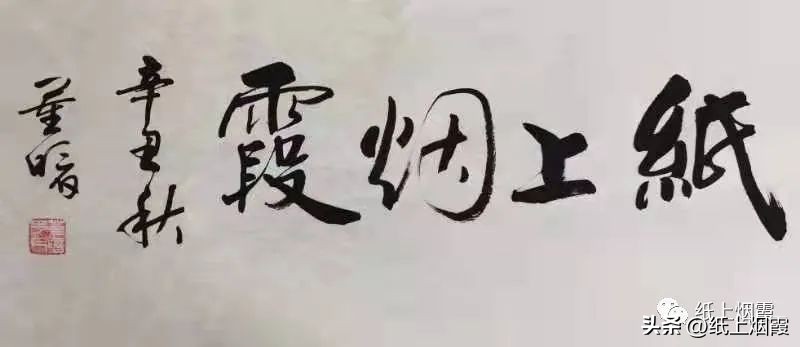 紙上烟霞
辛丑秋
董
纸上烟霞
头条 @纸上烟霞